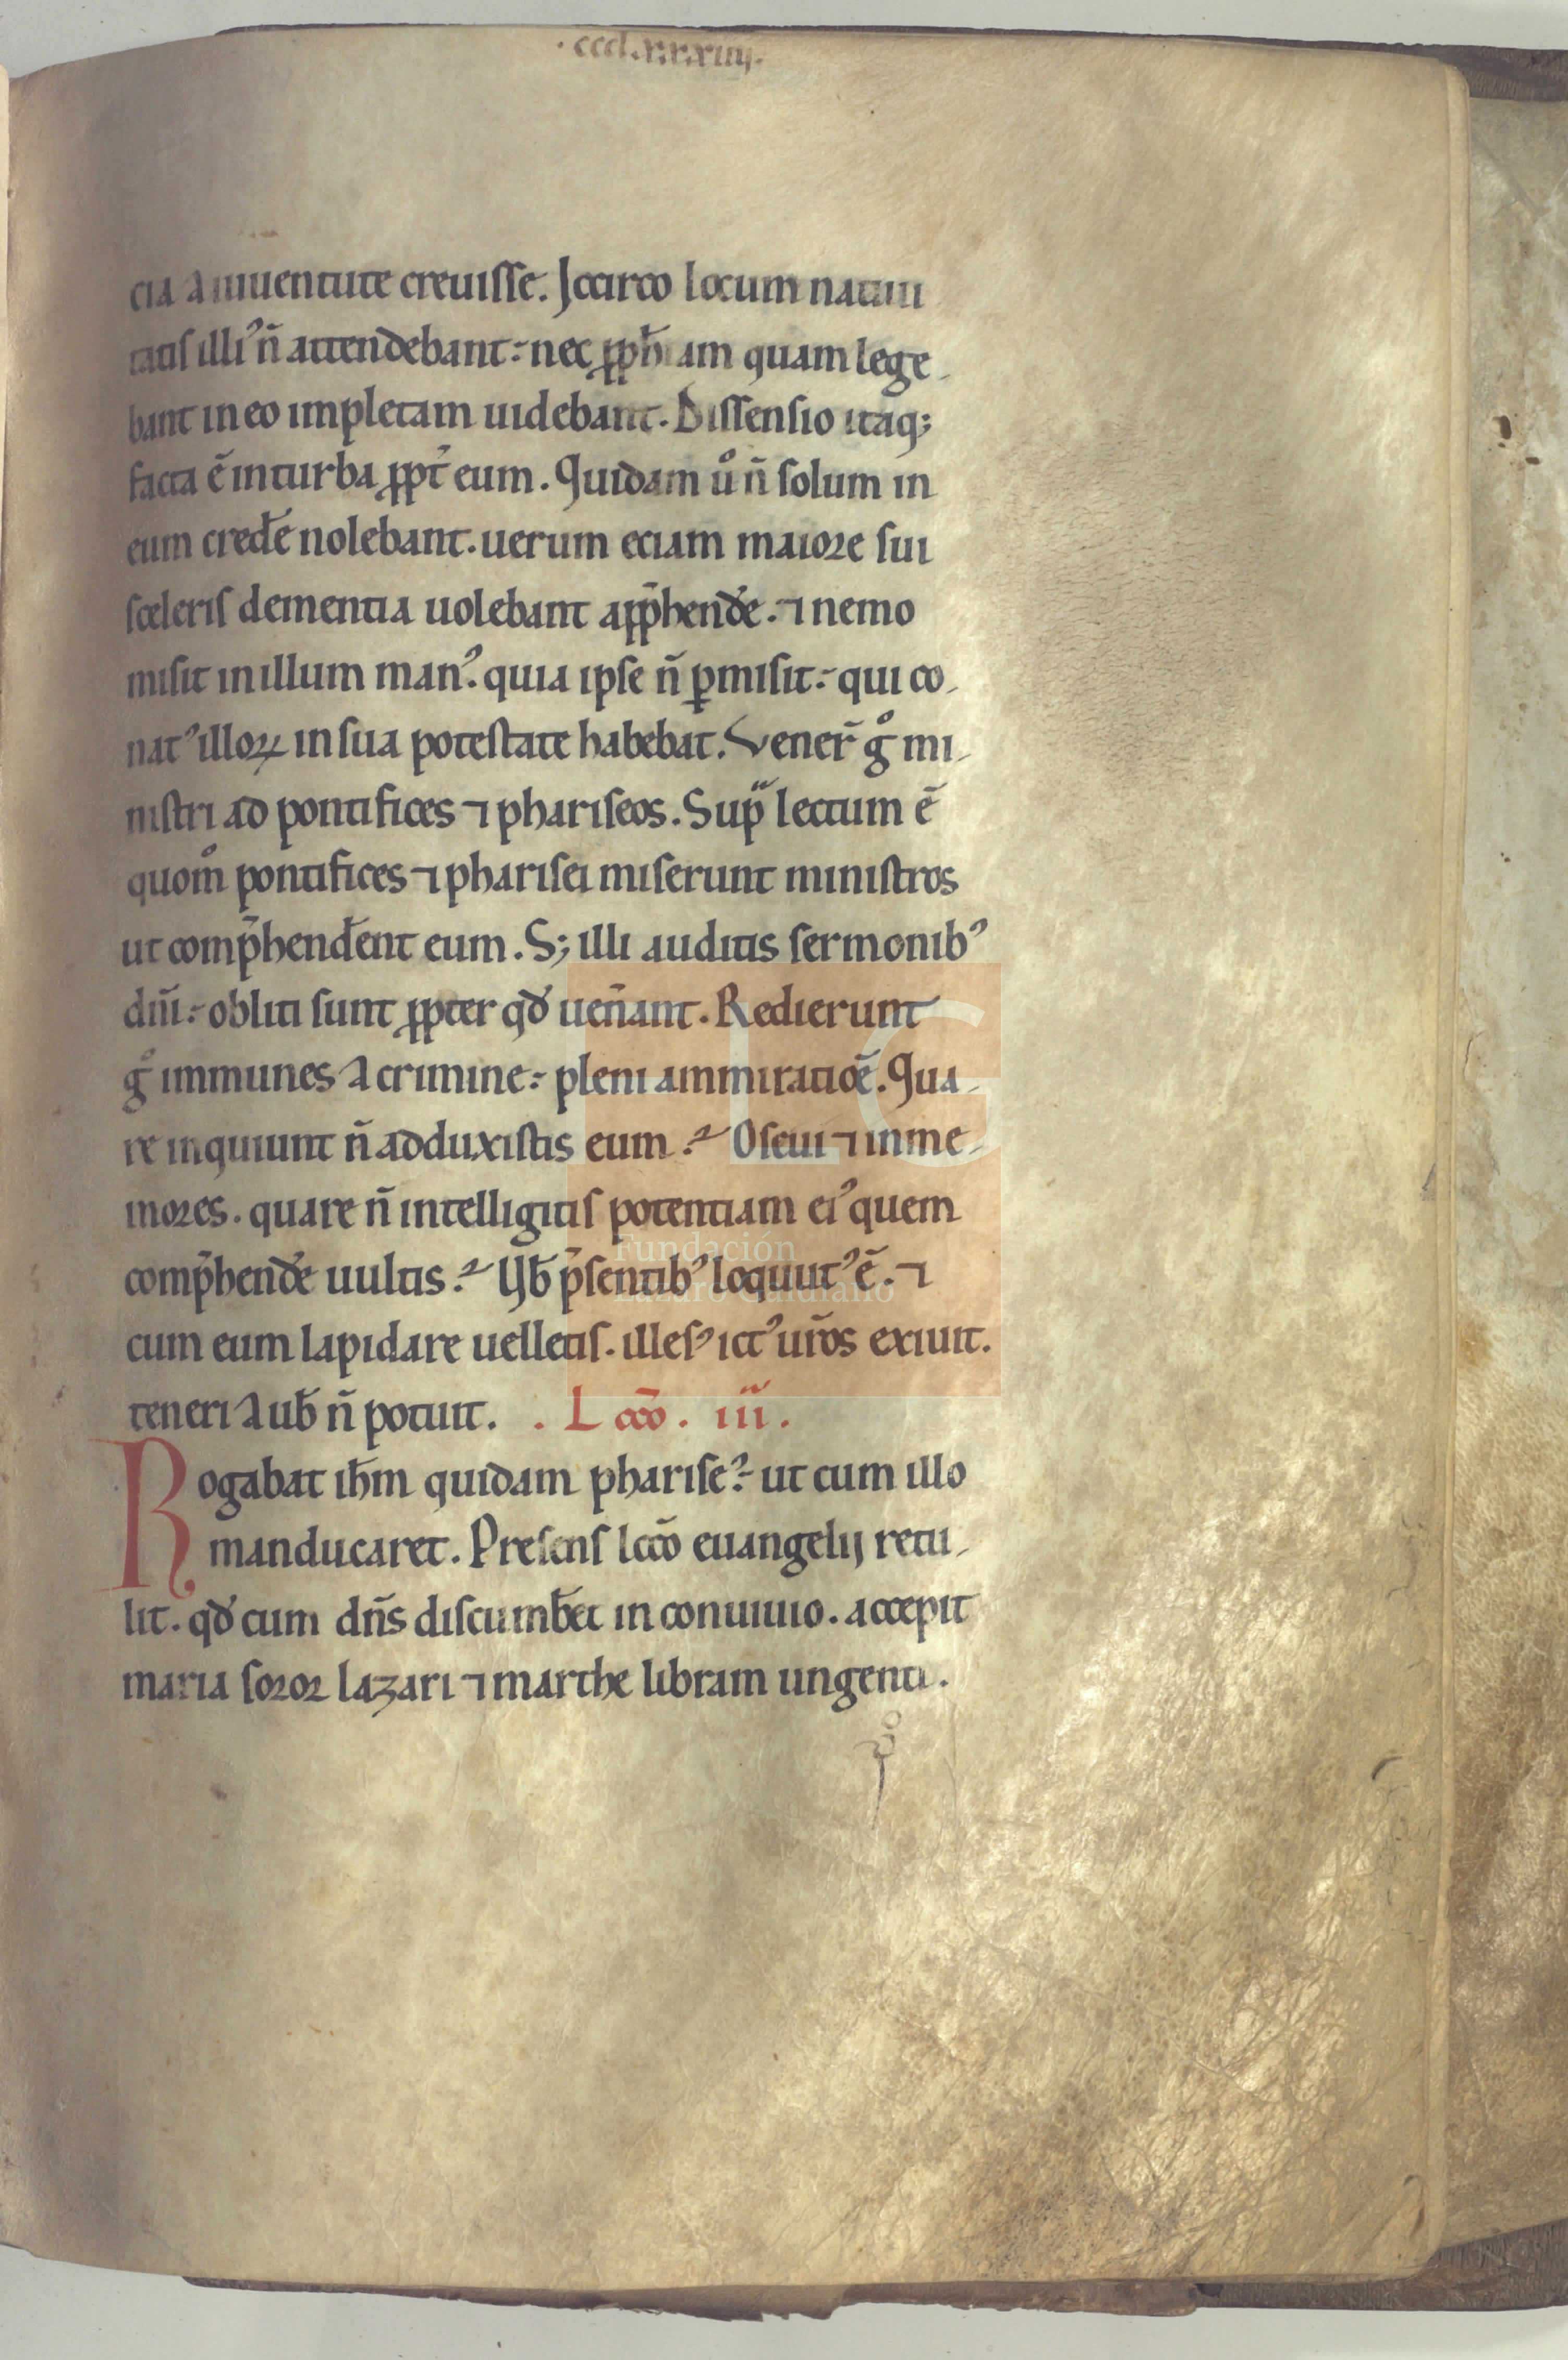 .ccclxxxiiij.
cia a iuuentute creuisse. Jccirco locum natiui
tatis illiꝰ n̄ attendebant: nec ꝓph̄iam quam lege-
bant in eo impletam uidebant. Dissensio itaq;
facta ē in turba ꝓpt̄ eum. Quidam uͦ n̄ solum in
eum cred̄e nolebant. uerum eciam maiore sui
sceleris dementia uolebant app̄hend̄e. ⁊ nemo
misit in illum manꝰ. quia ipse n̄ ꝑmisit: qui co-
natꝰ illoꝝ in sua potestate habebat. Vener̄ gͦ mi-
nistri ad pontifices ⁊ phariseos. Sup̄ lectum ē
quom̊ pontifices ⁊ pharisei miserunt ministros
ut comp̄hend̄ent eum. S; illi auditis sermonibꝰ
dn̄i: obliti sunt ꝓpter qd̄ uen̄ant. Redierunt
gͦ immunes a crimine: pleni ammiratiōe. Qua-
re inquiunt n̄ adduxistis eum? O seui ⁊ inme-
mores. quare n̄ intelligitis potentiam eiꝰ quem
comp̄hend̄e uultis? Ub̄ p̄sentibꝰ loquutꝰ ē. ⁊
cum eum lapidare uelletis. illesꝰ ictꝰ ur̄os exiuit.
teneri a ub̄ n̄ potuit. . Lcc̄o. iii.
Rogabat ih̄m quidam phariseꝰ: ut cum illo
manducaret. Presens lcc̄o euangelij retu-
lit. qd̄ cum dn̄s discumb̄et in conuiuio. accepit
maria soror lazari ⁊ marthe libram ungenti.
Fundación
Lázaro Galdiano